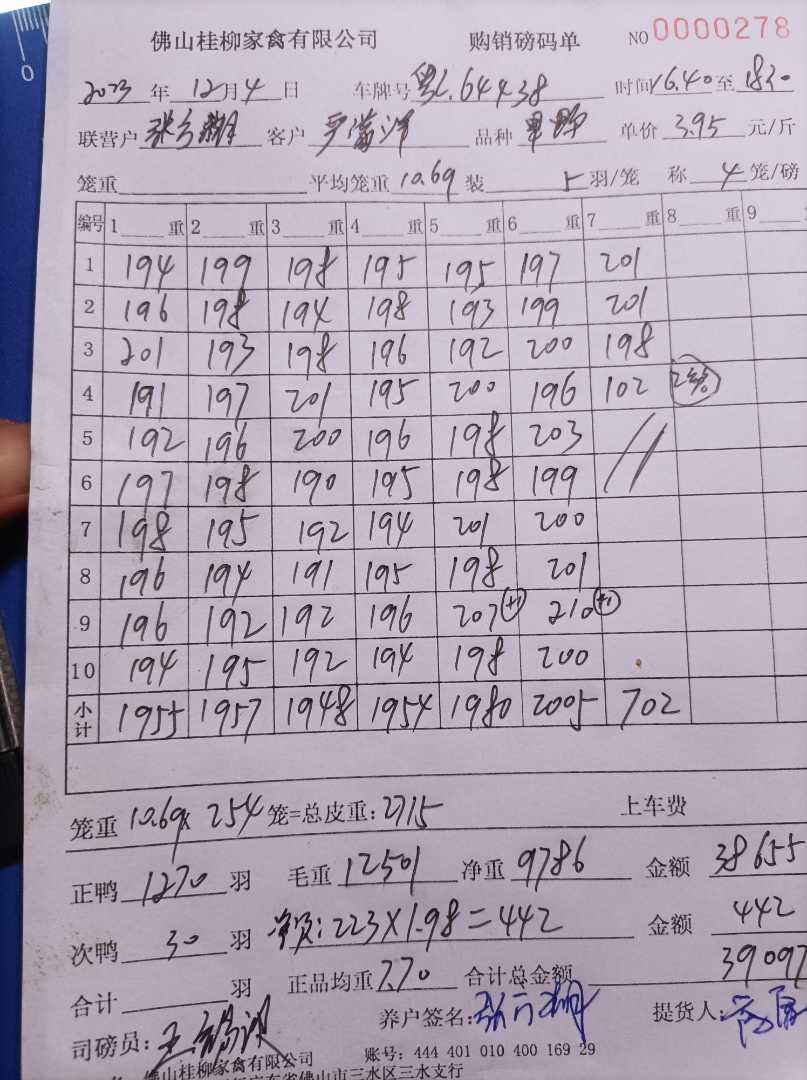 佛山桂柳家禽有限公司 购销磅码单 NO 0000278
2023年 12月4日 车牌号 粤L.64438 时间 16.40至 1830
联营户 客户 品种 单价 3.95 元/斤
笼重 平均笼重 10.69 装 5 羽/笼 称 4 笼/磅
编号 1 重 2 重 3 重 4 重 5 重 6 重 7 重 8 重 9
1 194 199 198 195 195 197 201
2 196 198 194 198 193 199 201
3 201 193 198 196 192 200 198
4 191 197 201 195 200 196 102 2笼
5 192 196 200 196 198 203
6 197 198 190 195 198 199
7 198 195 192 194 201 200
8 196 194 191 195 198 201
9 196 192 192 196 207 +1 210 +1
10 194 195 192 194 198 200
小计 1955 1957 1948 1954 1980 2005 702
笼重 10.69x 254 笼=总皮重: 2715 上车费
正鸭 1270 羽 毛重 12501 净重 9786 金额 38655
次鸭 30 羽 净货: 223×1.98=442 金额 442
合计 羽 正品均重 7.70 合计总金额 39097
司磅员: 养户签名: 提货人:
佛山桂柳家禽有限公司 账号: 444 401 010 400 169 29
广东省佛山市三水区三水支行